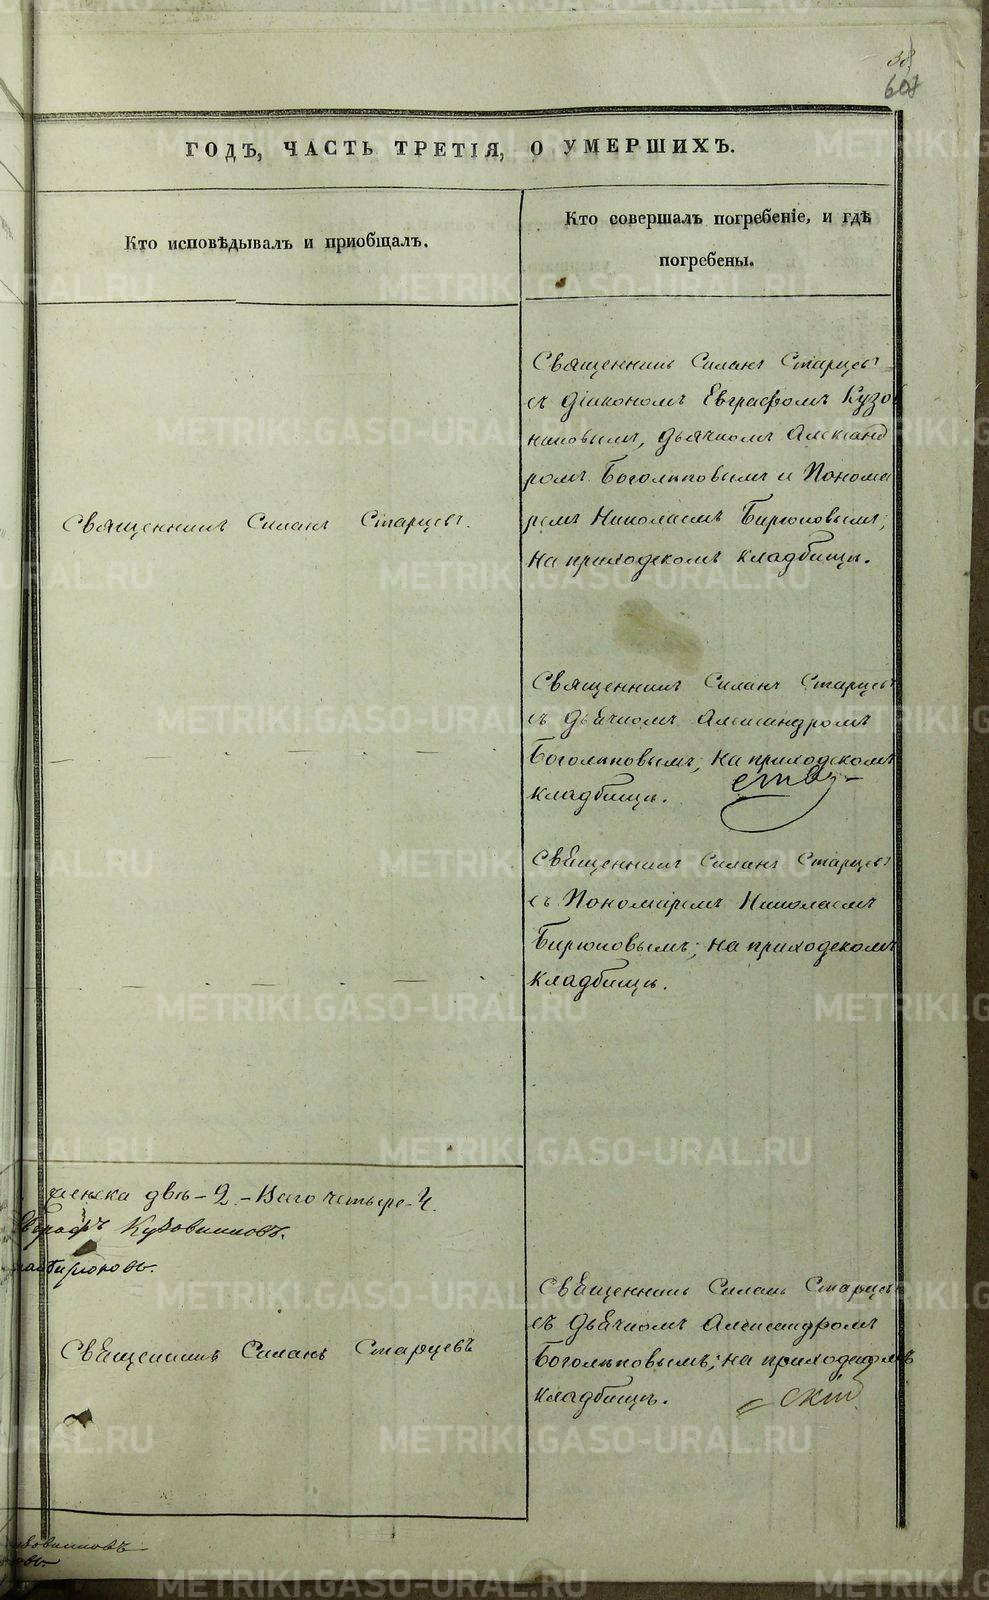 38
607
ГОДЪ, ЧАСТЬ ТРЕТІЯ, О УМЕРШИХЪ.
Кто исповѣдывалъ и приобщалъ.
Кто совершалъ погребеніе, и гдѣ
погребены.
Священникъ Силанъ Старцевъ.
Священникъ Силанъ Старцевъ
съ Діакономъ Евграфомъ Кузов
никовымъ, Дьячкомъ Александ
ромъ Боголѣповымъ и Понома
ремъ Николаемъ Бирюковымъ;
на приходскомъ кладбищѣ.
Священникъ Силанъ Старцевъ
съ Дьячкомъ Александромъ
Боголѣповымъ; на приходскомъ
кладбищѣ.
Священникъ Силанъ Старцевъ
съ Пономаремъ Николаемъ
Бирюковымъ; на приходскомъ
кладбищѣ.
женска двѣ - 2 - Всего четыре - 4.
Кузовниковъ.
Бирюковъ.
Священникъ Силанъ Старцевъ
Священникъ Силанъ Старцевъ
съ Дьячкомъ Александромъ
Боголѣповымъ; на приходскомъ
кладбищѣ.
METRIKI.GASO-URAL.RU